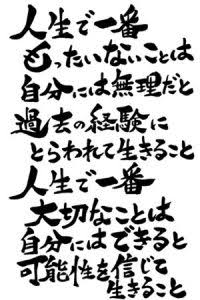 人生で一番
もったいないことは
自分には無理だと
過去の経験に
とらわれて生きること
人生で一番
大切なことは
自分にはできると
可能性を信じて
生きること